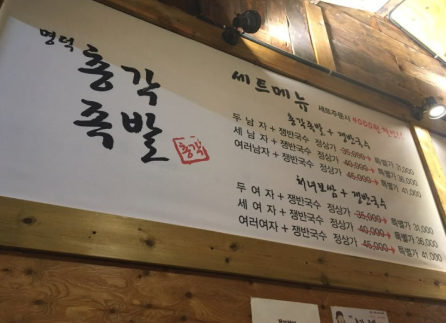 명덕
총각
족발
총각
세트메뉴 세트주문시 4000원 할인!!
총각족발 + 쟁반국수
두 남 자 + 쟁반국수 정상가 35,000 → 특별가 31,000
세 남 자 + 쟁반국수 정상가 40,000 → 특별가 36,000
여러남자 + 쟁반국수 정상가 45,000 → 특별가 41,000
처녀보쌈 + 쟁반국수
두 여 자 + 쟁반국수 정상가 35,000 → 특별가 31,000
세 여 자 + 쟁반국수 정상가 40,000 → 특별가 36,000
여러여자 + 쟁반국수 정상가 45,000 → 특별가 41,000